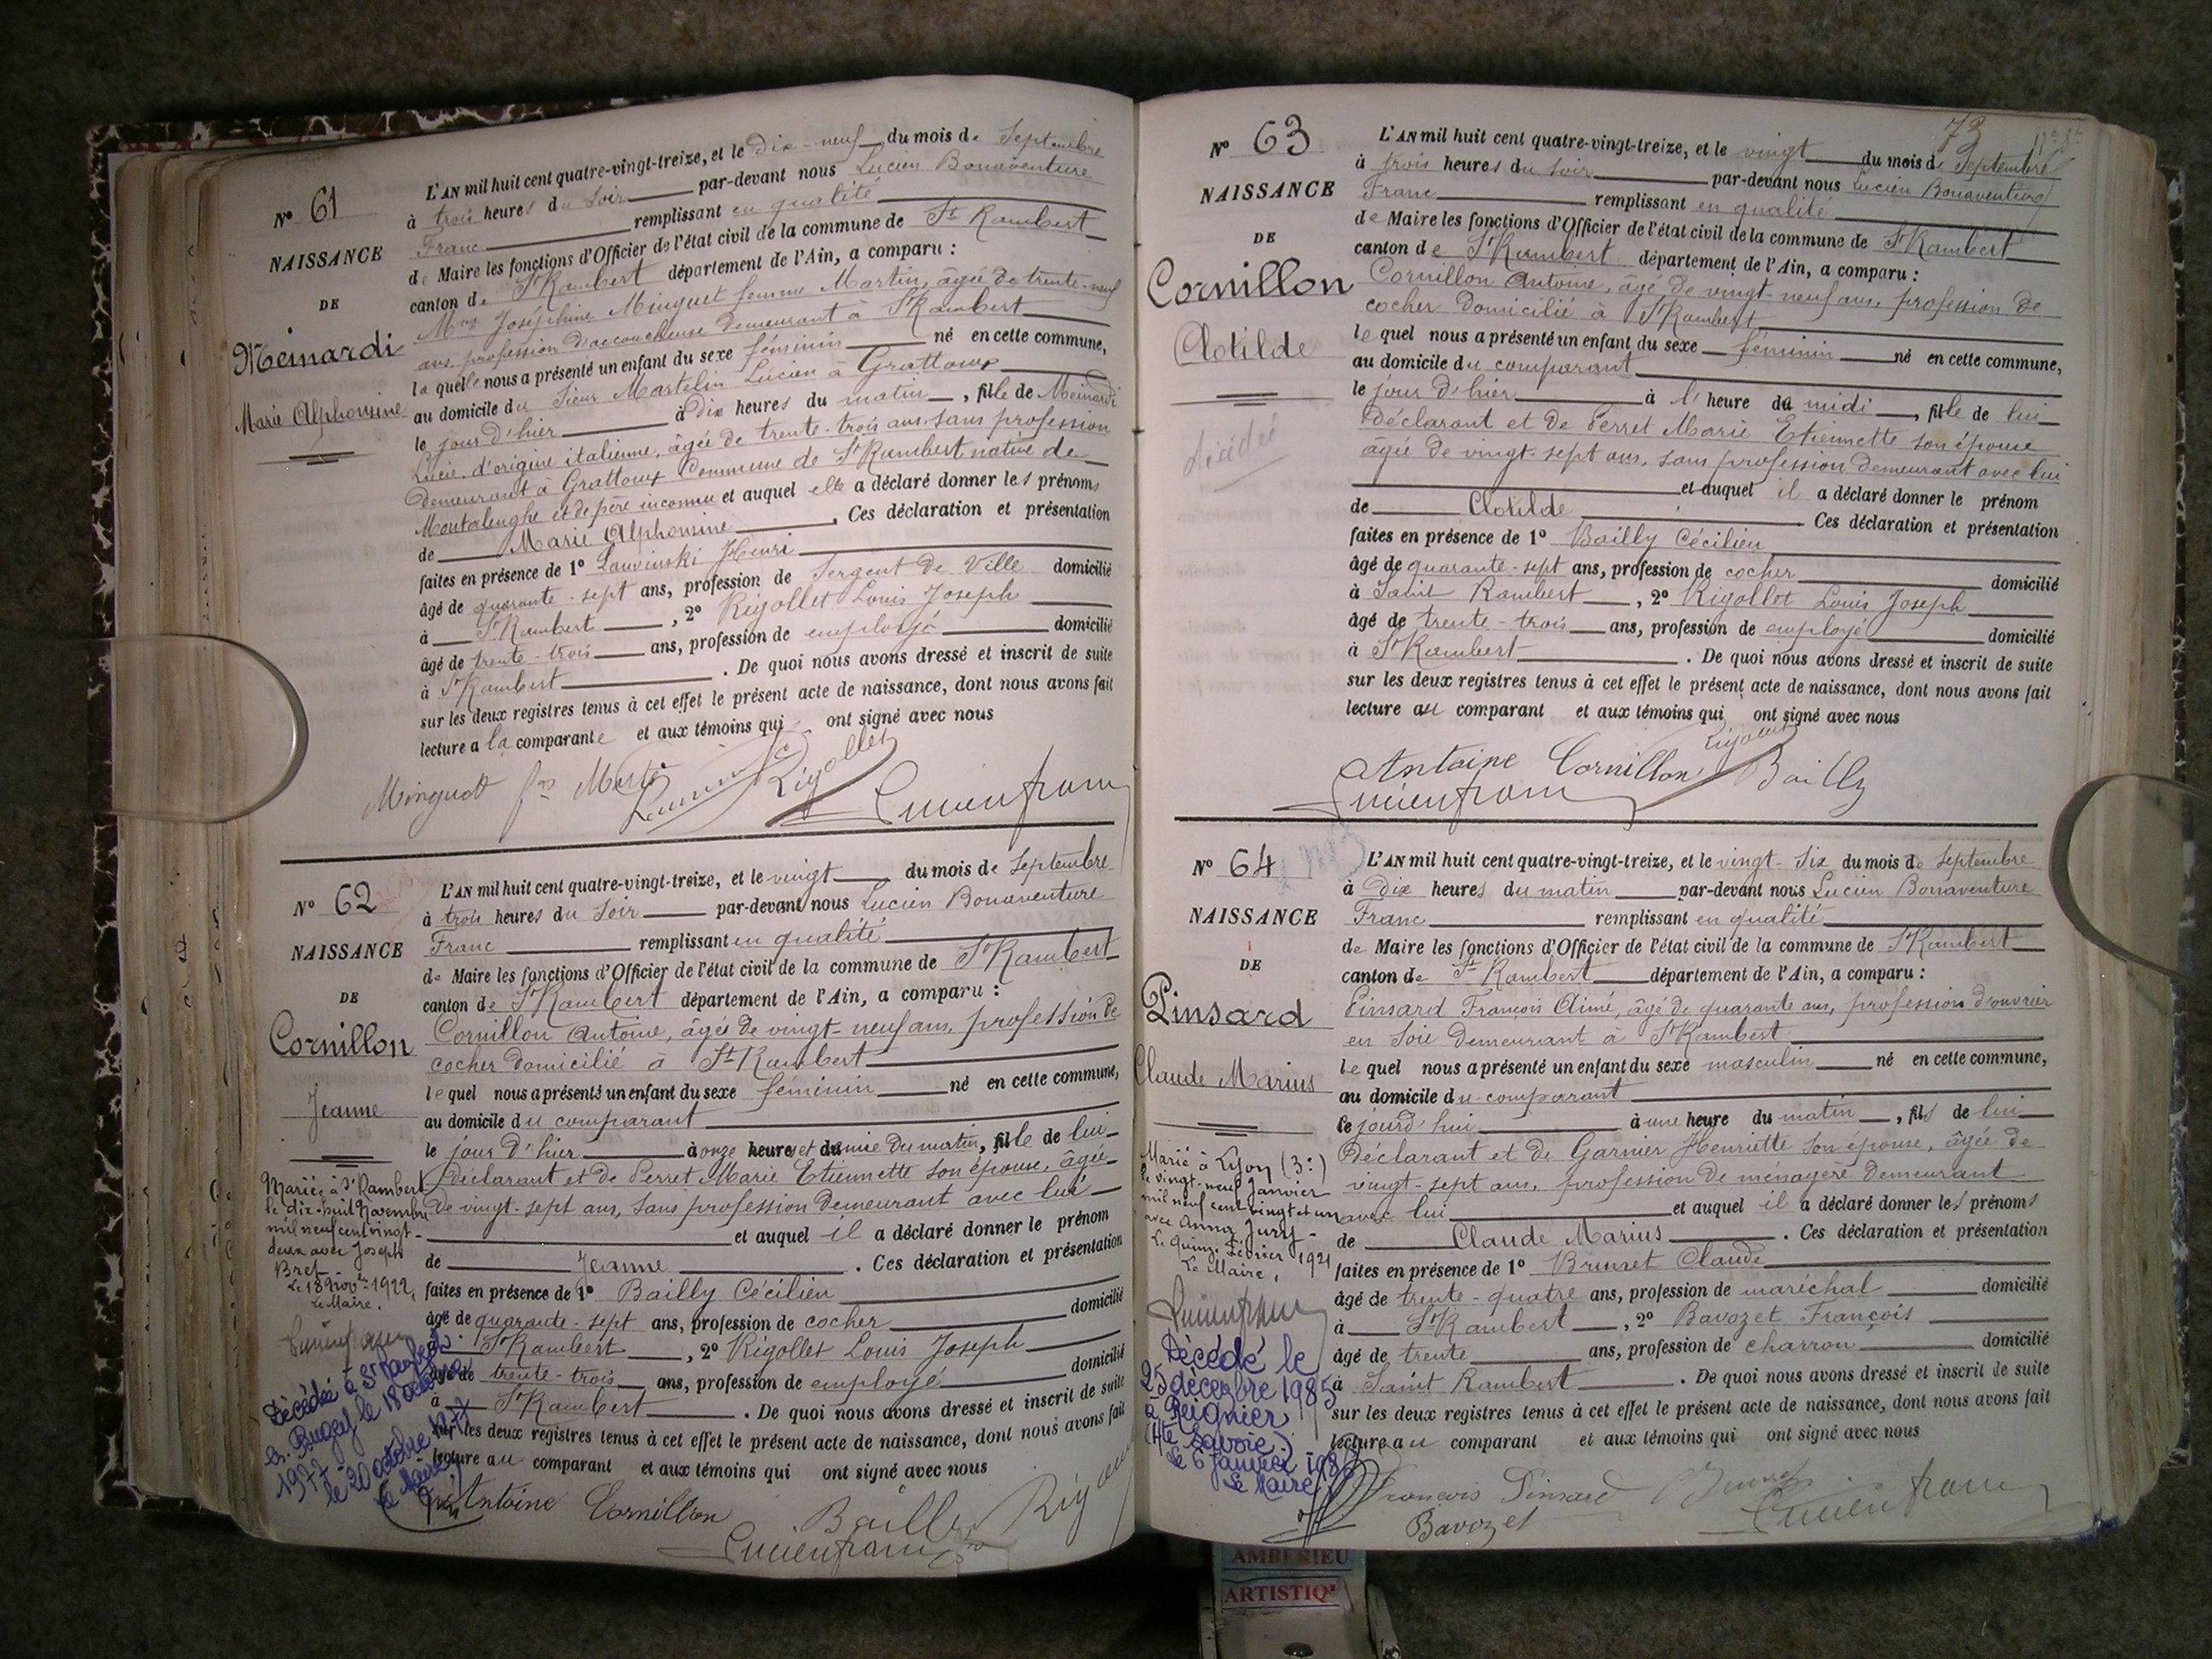 N° 61
NAISSANCE
DE
Meinardi
Marie Alphonsine
L'AN mil huit cent quatre-vingt-treize, et le dix-neuf du mois de Septembre
à trois heures du soir par-devant nous Lucien Bonaventure
Franc remplissant en qualité
de Maire les fonctions d'Officier de l'état civil de la commune de St Rambert
canton de St Rambert département de l'Ain, a comparu :
Mme Joséphine Minguet femme Martin, âgée de trente-neuf
ans, profession d'accoucheuse demeurant à St Rambert
la quelle nous a présenté un enfant du sexe féminin né en cette commune,
au domicile du Sieur Martelin Lucien à Grattoux
le jour d'hier à dix heures du matin, fille de Meinardi
Lucie, d'origine italienne, âgée de trente-trois ans, sans profession
demeurant à Grattoux Commune de St Rambert native de
Montalenghe et de père inconnu et auquel elle a déclaré donner les prénoms
de Marie Alphonsine. Ces déclaration et présentation
faites en présence de 1° Henri
âgé de quarante-sept ans, profession de Sergent de Ville domicilié
à St Rambert, 2° Rigollet Louis Joseph
âgé de trente-trois ans, profession de employé domicilié
à St Rambert. De quoi nous avons dressé et inscrit de suite
sur les deux registres tenus à cet effet le présent acte de naissance, dont nous avons fait
lecture a la comparante et aux témoins qui ont signé avec nous
Minguet Rigollet
Lucien franc
N° 62
NAISSANCE
DE
Cornillon
Jeanne
Mariée à St Rambert
le dix-huit Novembre
mil neuf cent vingt-
deux avec Joseph
Bref.
Le 18 novbre 1922,
Le Maire.
Lucien franc
Décédée à St Rambert
en Bugey le 18 octobre
1977
le 20 octobre 1977
Le Maire
L'AN mil huit cent quatre-vingt-treize, et le vingt du mois de Septembre
à trois heures du soir par-devant nous Lucien Bonaventure
Franc remplissant en qualité
de Maire les fonctions d'Officier de l'état civil de la commune de St Rambert
canton de St Rambert département de l'Ain, a comparu :
Cornillon Antoine, âgée de vingt-neuf ans, profession de
cocher domicilié à St Rambert
le quel nous a présenté un enfant du sexe féminin né en cette commune,
au domicile du comparant
le jour d'hier à onze heures et demie du matin, fille de lui
déclarant et de Perret Marie Etiennette son épouse, âgée
de vingt-sept ans, sans profession demeurant avec lui
et auquel il a déclaré donner le prénom
de Jeanne. Ces déclaration et présentation
faites en présence de 1° Bailly Cécilien
âgé de quarante-sept ans, profession de cocher domicilié
à St Rambert, 2° Rigollet Louis Joseph
âgé de trente-trois ans, profession de employé domicilié
à St Rambert. De quoi nous avons dressé et inscrit de suite
sur les deux registres tenus à cet effet le présent acte de naissance, dont nous avons fait
lecture au comparant et aux témoins qui ont signé avec nous
Antoine Cornillon Bailly
Lucien franc
73
N° 63
NAISSANCE
DE
Cornillon
Clotilde
décédée
L'AN mil huit cent quatre-vingt-treize, et le vingt du mois de Septembre
à trois heures du soir par-devant nous Lucien Bonaventure
Franc remplissant en qualité
de Maire les fonctions d'Officier de l'état civil de la commune de St Rambert
canton de St Rambert département de l'Ain, a comparu :
Cornillon Antoine, âgé de vingt-neuf ans, profession de
cocher domicilié à St Rambert
le quel nous a présenté un enfant du sexe féminin né en cette commune,
au domicile du comparant
le jour d'hier à l' heure de midi, fille de lui
déclarant et de Perret Marie Etiennette son épouse
âgée de vingt-sept ans, sans profession demeurant avec lui
et auquel il a déclaré donner le prénom
de Clotilde. Ces déclaration et présentation
faites en présence de 1° Bailly Cécilien
âgé de quarante-sept ans, profession de cocher domicilié
à Saint Rambert, 2° Rigollet Louis Joseph
âgé de trente-trois ans, profession de employé domicilié
à St Rambert. De quoi nous avons dressé et inscrit de suite
sur les deux registres tenus à cet effet le présent acte de naissance, dont nous avons fait
lecture au comparant et aux témoins qui ont signé avec nous
Rigollet
Antoine Cornillon Bailly
Lucien franc
N° 64
NAISSANCE
DE
Pinsard
Claude Marius
Marié à Lyon (3e)
le vingt-neuf Janvier
mil neuf cent vingt et un
avec Anna Jurry
Le quinze Février 1921
Le Maire,
Lucien franc
Décédé le
25 décembre 1985
à Reignier
(Hte Savoie)
le 6 Janvier 1986
Le Maire
L'AN mil huit cent quatre-vingt-treize, et le vingt-six du mois de Septembre
à dix heures du matin par-devant nous Lucien Bonaventure
Franc remplissant en qualité
de Maire les fonctions d'Officier de l'état civil de la commune de St Rambert
canton de St Rambert département de l'Ain, a comparu :
Pinsard François Aimé, âgé de quarante ans, profession d'ouvrier
en soie demeurant à St Rambert
le quel nous a présenté un enfant du sexe masculin né en cette commune,
au domicile du comparant
ce jourd'hui à une heure du matin, fils de lui
déclarant et de Garnier Henriette son épouse, âgée de
vingt-sept ans, profession de ménagère demeurant
avec lui et auquel il a déclaré donner les prénoms
de Claude Marius. Ces déclaration et présentation
faites en présence de 1° Brunet Claude
âgé de trente-quatre ans, profession de maréchal domicilié
à St Rambert, 2° Bavozet François
âgé de trente ans, profession de charron domicilié
à Saint Rambert. De quoi nous avons dressé et inscrit de suite
sur les deux registres tenus à cet effet le présent acte de naissance, dont nous avons fait
lecture au comparant et aux témoins qui ont signé avec nous
François Pinsard Brunet
Bavozet Lucien franc
AMBERIEU
ARTISTIQ